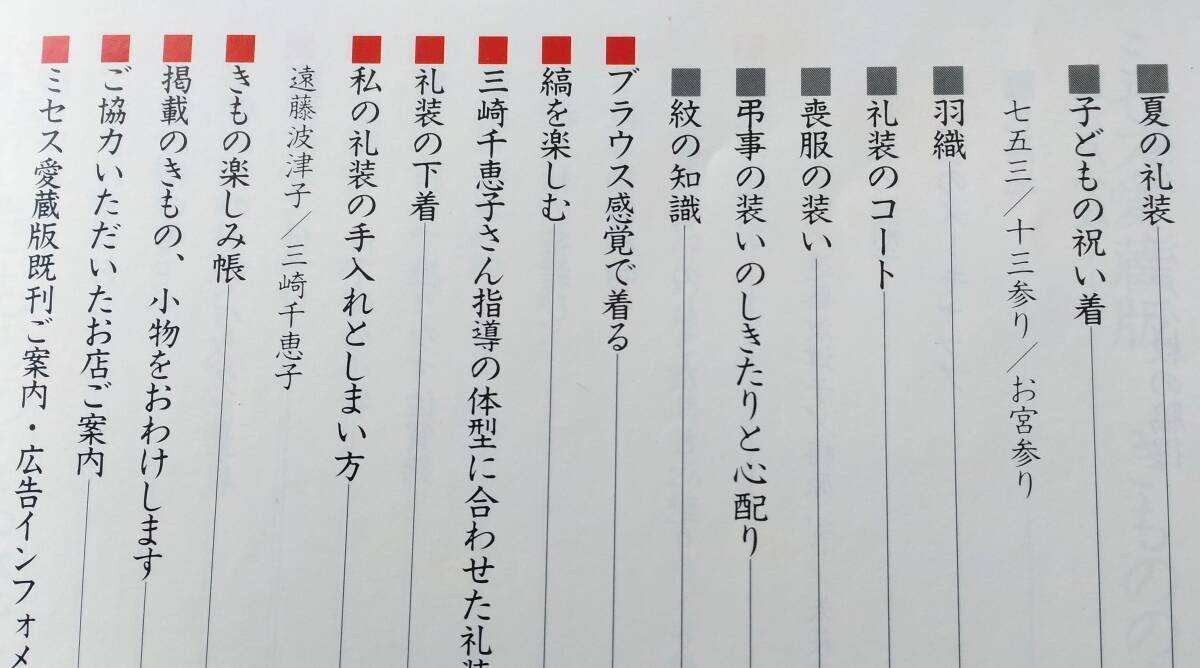 ■夏の礼装
■子どもの祝い着
七五三／十三参り／お宮参り
■羽織
■礼装のコート
■喪服の装い
■弔事の装いのしきたりと心配り
■紋の知識
■ブラウス感覚で着る
■縞を楽しむ
■三崎千恵子さん指導の体型に合わせた礼装
■礼装の下着
■私の礼装の手入れとしまい方
遠藤波津子／三崎千恵子
■きもの楽しみ帳
■掲載のきもの、小物をおわけします
■ご協力いただいたお店ご案内
■ミセス愛蔵版既刊ご案内・広告インフォメ